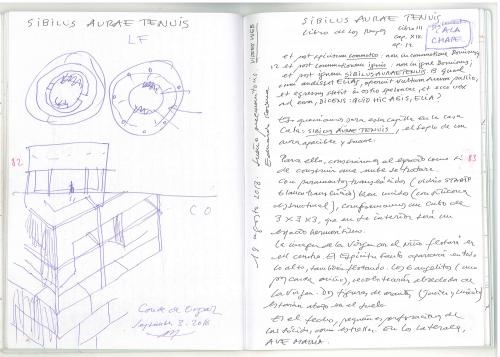 SIBILUS AURAE TENUIS
LF
82
C O
Conde de Orgaz
September 3. 2018
SIBILUS AURAE TENUIS
Libro de los Reyes Libro III
cap. XIX
CALA
CHAPE
et post spiritum commotio: non in commotione Dominus,
12 et post commotionem ignis: non in igne Dominus;
et post ignem SIBILUS AURAE TENUIS. 13 quod
cum audisset ELIAS, operuit vultum suum pallio,
et egressus stetit in ostio speluncae, et ecce vox
ad eum, DICENS: QUID HIC AGIS, ELIA?
capilla en la casa
Cala: SIBILUS AURAE TENUIS, el soplo de un
aura apacible y suave.
Para ello, al espacio como si 83
de construir una nube se tratara.
Con paramentos translúcidos (vidrio
blanco translúcido) bien unido (con silicona
estructural), conformamos un cubo de
3 x 3 x 3, que en su interior será un
espacio
La imagen de la Virgen con el Niño flotará en
su centro. El Espíritu Santo aparecerá en todo
lo alto, también flotando. Los angelitos (uno
por cada niño), revolotearán alrededor de
la Virgen. Dos figuras de
estarán en el suelo
En el techo, pequeñas perforaciones de
como estrellas. En los laterales,
AVE MARIA.
19 agosto 2018.